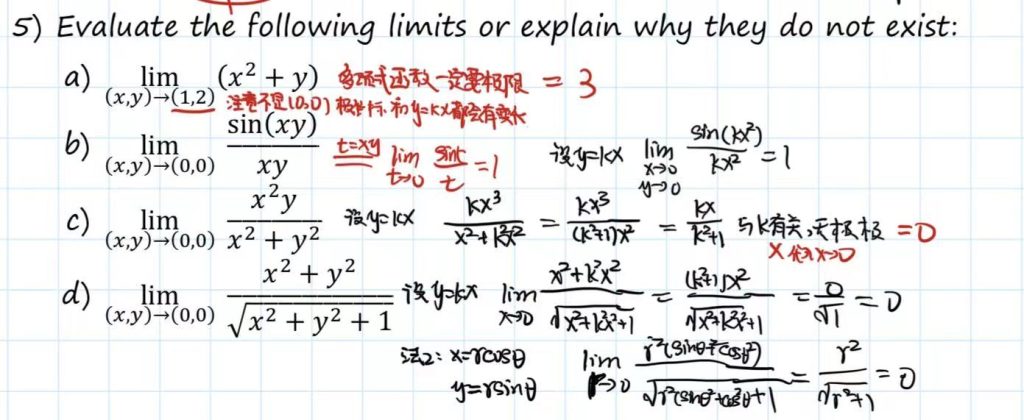 5) Evaluate the following limits or explain why they do not exist:
a) lim (x,y)→(1,2) (x² + y) 多项式函数一定要极限 = 3
注意不是(0,0) 极坐标和y=kx都会有变化
b) lim (x,y)→(0,0) sin(xy)/xy t=xy lim t→0 sint/t =1 设y=kx lim x→0 y→0 sin(kx²)/kx² =1
c) lim (x,y)→(0,0) x²y/(x² + y²) 设y=kx kx³/(x²+k²x²) = kx³/((k²+1)x²) = kx/(k²+1) 与k有关,无极限 =0
x 代入x→0
d) lim (x,y)→(0,0) (x² + y²)/√(x² + y² + 1) 设y=kx lim x→0 (x²+k²x²)/√(x²+k²x²+1) = (k²+1)x²/√(x²+k²x²+1) = 0/√1 = 0
法2: x=rcosθ lim r→0 r²(sinθ²+cosθ²)/√(r²(sinθ²+cos²θ)+1) = r²/√(r²+1) = 0
y=rsinθ